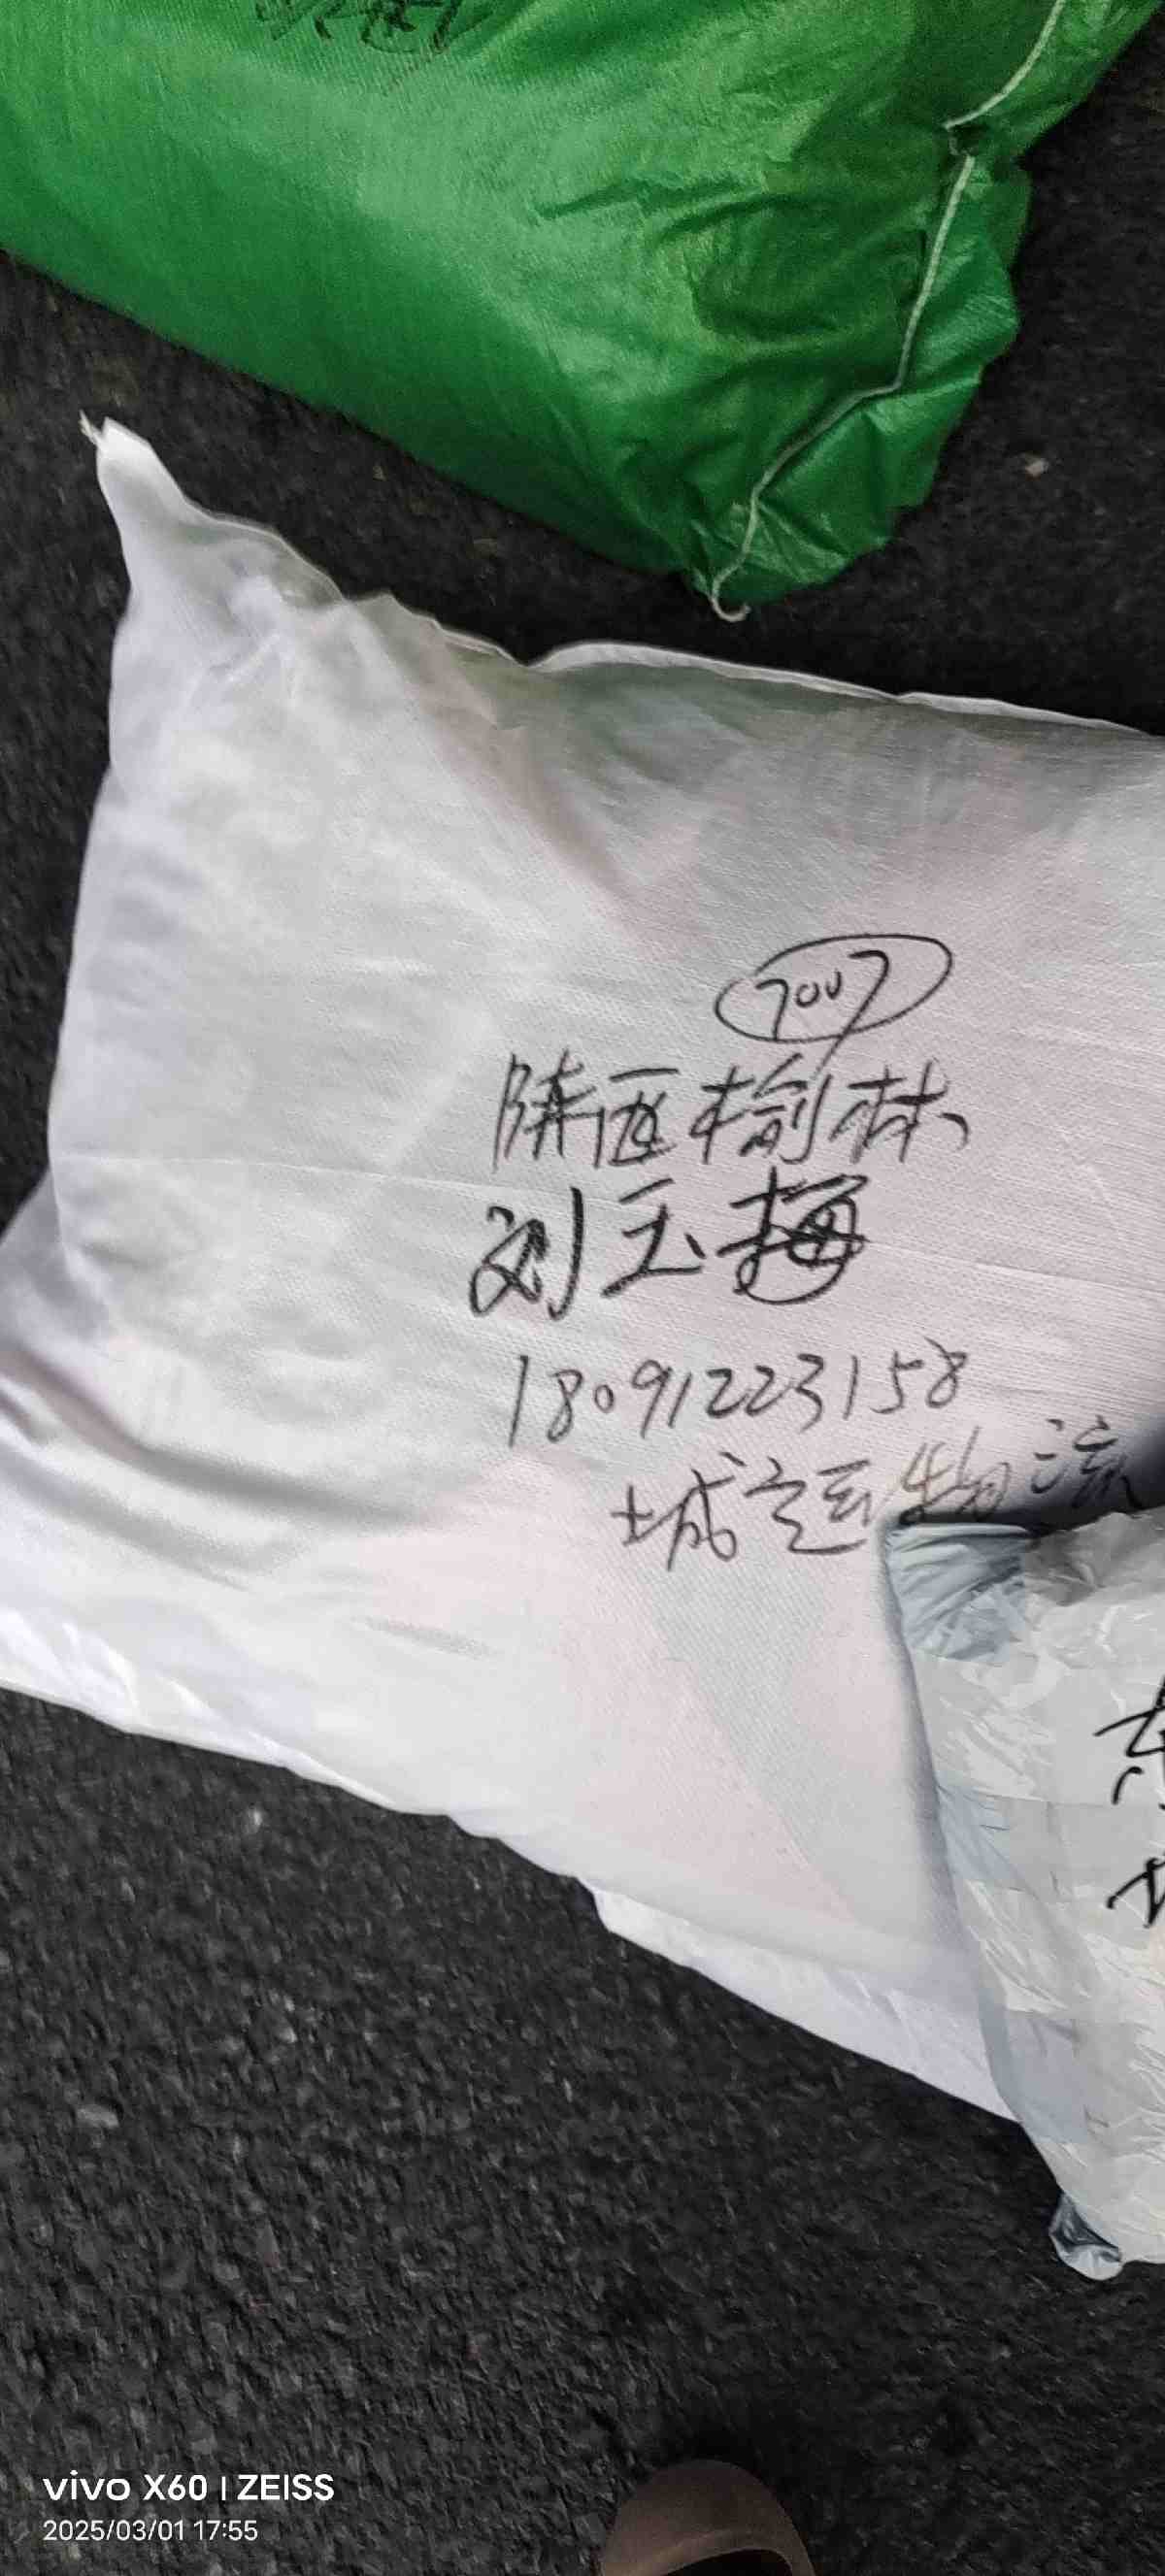 7007
陕西榆林
刘玉梅
18091223158
城运物流
vivo X60 | ZEISS
2025/03/01 17:55